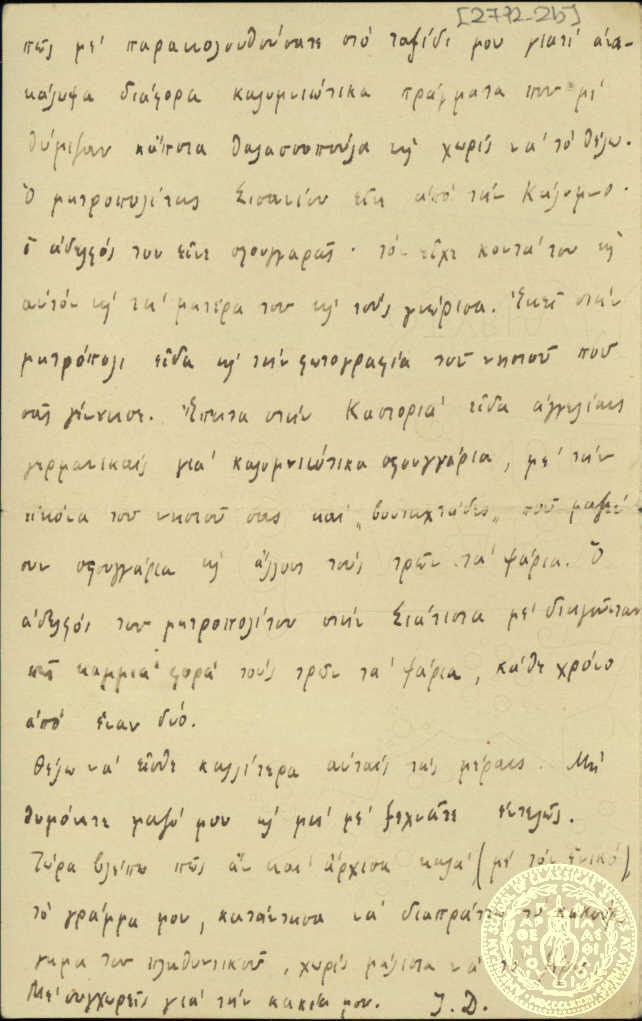 [2772-2b]
πῶς μὲ παρακολουθούσατε στὸ ταξίδι μου γιατὶ ἀνα-
κάλυψα διάφορα καλυμνιώτικα πράγματα που μὲ
θύμισαν κάποια θαλασσοπούλα κι' χωρὶς νὰ τὸ θέλω.
Ὁ μητροπολίτης Σισανίου εἶνε ἀπὸ τὴν Κάλυμνο.
Ὁ ἀδελφός του εἶνε σφουγγαρᾶς. τὸν εἶχε κοντά του κι'
αὐτὸν κι' τὴ μητέρα του κι' τοὺς γνώρισα. Ἐκεῖ στὴν
μητρόπολι εἶδα κι' τὴν φωτογραφία τοῦ νησιοῦ ποῦ
σᾶς γέννησε. Ἔπειτα στὴν Καστοριὰ εἶδα ἀγγελίαις
γερμανικαῖς γιὰ καλυμνιώτικα σφουγγάρια, μὲ τὴν
εἰκόνα του νησιοῦ σας καὶ „βουτηχτάδες„ ποῦ μαζεύ
ουν σφουγγάρια κι' ἄλλους τοὺς τρῶν τὰ ψάρια. Ὁ
ἀδελφὸς του μητροπολίτου στὴν Σιάτιστα μὲ διηγῶταν
πῶς καμμιὰ φορὰ τοὺς τρῶν τὰ ψάρια, κάθε χρόνο
ἀπὸ ἕναν δυό.
Θέλω νὰ εἶσθε καλλίτερα αὐταὶς ταὶς μέραις. Μὴ
θυμόνετε μαζύ μου κι' μὴ μὲ ξεχνᾶτε ἐντελῶς.
Τώρα βλέπω πῶς ἂν καὶ ἄρχισα καλὰ (μὲ τὸν ἑνικὸ)
τὸ γράμμα μου, κατάντησα νὰ διαπράττω τὸ κακούρ
γημα του πληθυντικοῦ, χωρὶς μάλιστα νὰ τὸ θέλω.
Μὲ συγχωρεῖς γιὰ τὴν κακία μου. Ι.Δ.